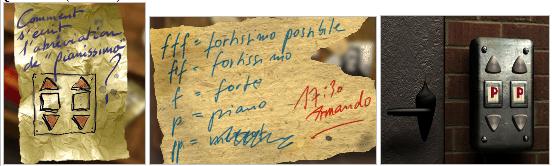 Comment
s'ecrit
l'abréviation
de "pianissimo"
?
fff = fortissimo possibile
ff = fortissimo
f = forte
p = piano
pp =
17:30
Armando
P P